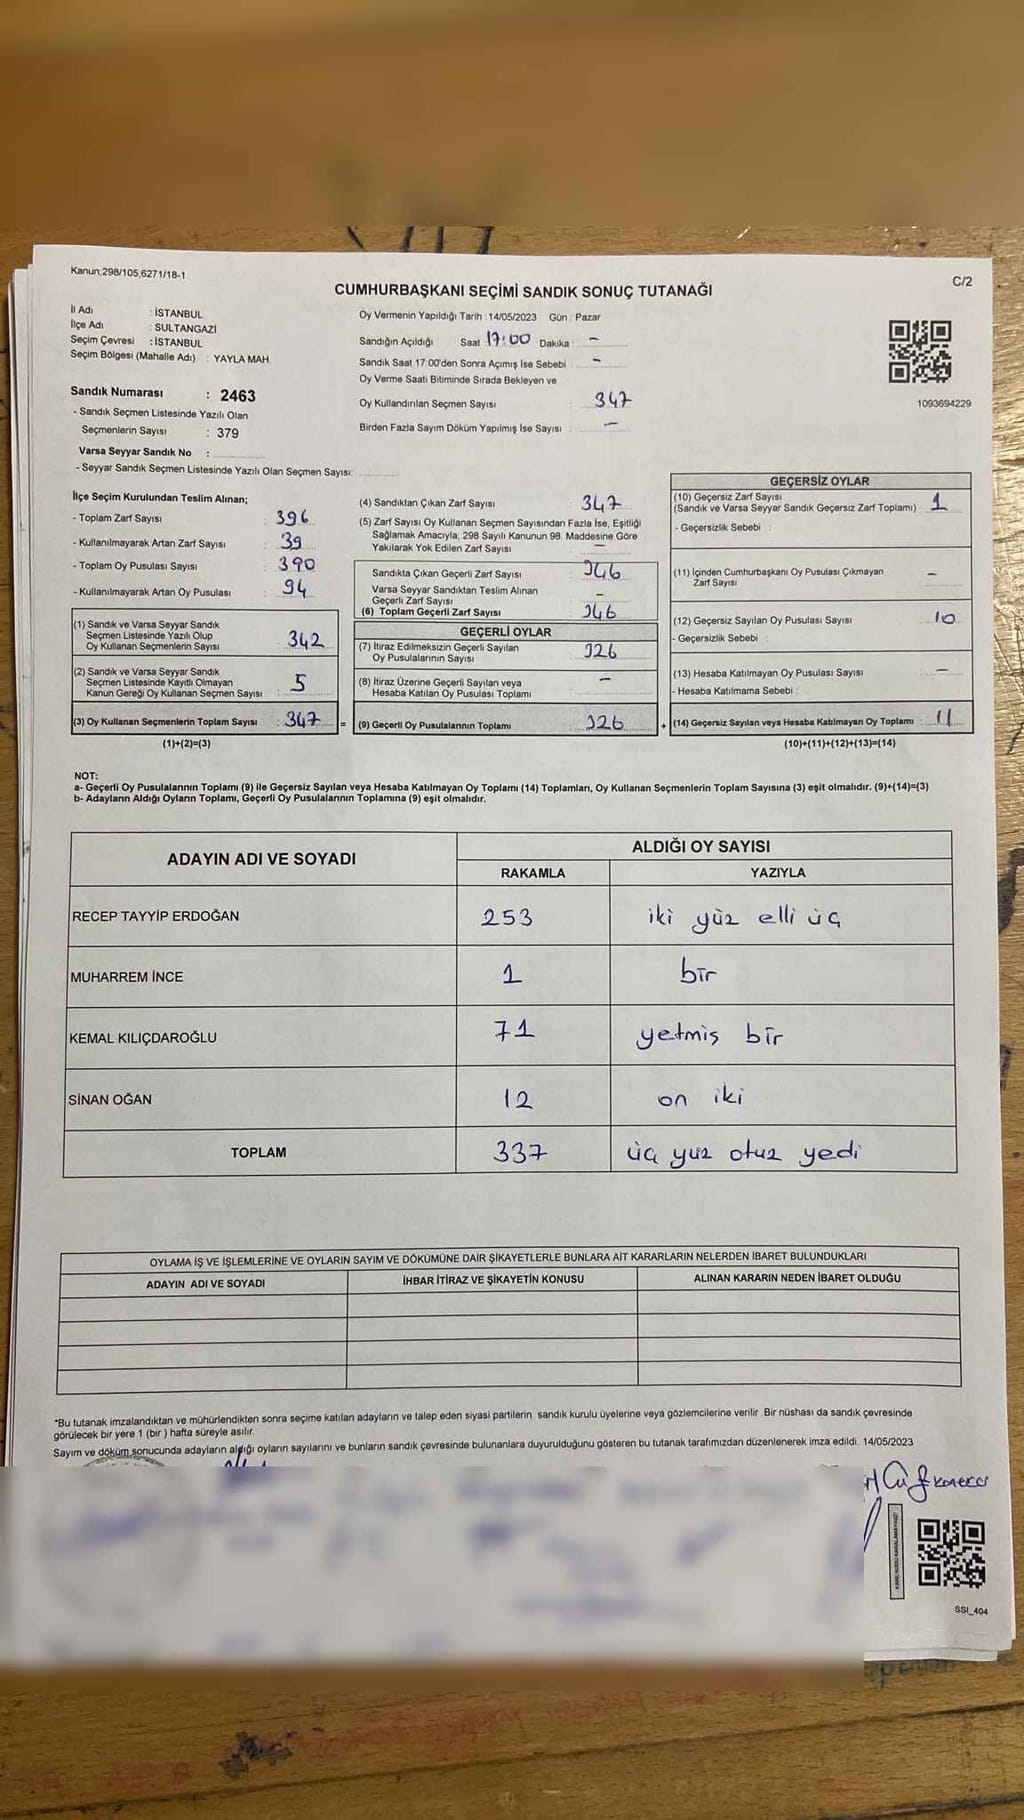 Kanun;298/105,6271/18-1
C/2
CUMHURBAŞKANI SEÇİMİ SANDIK SONUÇ TUTANAĞI
İl Adı : İSTANBUL
İlçe Adı : SULTANGAZİ
Seçim Çevresi : İSTANBUL
Seçim Bölgesi (Mahalle Adı) : YAYLA MAH
Sandık Numarası : 2463
- Sandık Seçmen Listesinde Yazılı Olan
Seçmenlerin Sayısı : 379
Varsa Seyyar Sandık No :
- Seyyar Sandık Seçmen Listesinde Yazılı Olan Seçmen Sayısı:
Oy Vermenin Yapıldığı Tarih : 14/05/2023 Gün : Pazar
Sandığın Açıldığı Saat 17:00 Dakika : -
Sandık Saat 17:00'den Sonra Açımış İse Sebebi : -
Oy Verme Saati Bitiminde Sırada Bekleyen ve
Oy Kullandırılan Seçmen Sayısı : 347
Birden Fazla Sayım Döküm Yapılmış İse Sayısı : -
1093694229
İlçe Seçim Kurulundan Teslim Alınan;
- Toplam Zarf Sayısı : 396
- Kullanılmayarak Artan Zarf Sayısı : 39
- Toplam Oy Pusulası Sayısı : 390
- Kullanılmayarak Artan Oy Pusulası : 94
(1) Sandık ve Varsa Seyyar Sandık
Seçmen Listesinde Yazılı Olup
Oy Kullanan Seçmenlerin Sayısı : 342
(2) Sandık ve Varsa Seyyar Sandık
Seçmen Listesinde Kayıtlı Olmayan
Kanun Gereği Oy Kullanan Seçmen Sayısı : 5
(3) Oy Kullanan Seçmenlerin Toplam Sayısı : 347 =
(1)+(2)=(3)
(4) Sandıktan Çıkan Zarf Sayısı : 347
(5) Zarf Sayısı Oy Kullanan Seçmen Sayısından Fazla İse, Eşitliği
Sağlamak Amacıyla, 298 Sayılı Kanunun 98. Maddesine Göre
Yakılarak Yok Edilen Zarf Sayısı : -
Sandıkta Çıkan Geçerli Zarf Sayısı : 346
Varsa Seyyar Sandıktan Teslim Alınan
Geçerli Zarf Sayısı : -
(6) Toplam Geçerli Zarf Sayısı : 346
GEÇERLİ OYLAR
(7) İtiraz Edilmeksizin Geçerli Sayılan
Oy Pusulalarının Sayısı : 326
(8) İtiraz Üzerine Geçerli Sayılan veya
Hesaba Katılan Oy Pusulası Toplamı : -
(9) Geçerli Oy Pusulalarının Toplamı : 326 +
GEÇERSİZ OYLAR
(10) Geçersiz Zarf Sayısı
(Sandık ve Varsa Seyyar Sandık Geçersiz Zarf Toplamı) : 1
- Geçersizlik Sebebi :
(11) İçinden Cumhurbaşkanı Oy Pusulası Çıkmayan
Zarf Sayısı : -
(12) Geçersiz Sayılan Oy Pusulası Sayısı : 10
- Geçersizlik Sebebi :
(13) Hesaba Katılmayan Oy Pusulası Sayısı : -
- Hesaba Katılmama Sebebi :
(14) Geçersiz Sayılan veya Hesaba Katılmayan Oy Toplamı : 11
(10)+(11)+(12)+(13)=(14)
NOT:
a- Geçerli Oy Pusulalarının Toplamı (9) ile Geçersiz Sayılan veya Hesaba Katılmayan Oy Toplamı (14) Toplamları, Oy Kullanan Seçmenlerin Toplam Sayısına (3) eşit olmalıdır. (9)+(14)=(3)
b- Adayların Aldığı Oyların Toplamı, Geçerli Oy Pusulalarının Toplamına (9) eşit olmalıdır.
ADAYIN ADI VE SOYADI
ALDIĞI OY SAYISI
RAKAMLA YAZIYLA
RECEP TAYYİP ERDOĞAN 253 iki yüz elli üç
MUHARREM İNCE 1 bir
KEMAL KILIÇDAROĞLU 71 yetmiş bir
SİNAN OĞAN 12 on iki
TOPLAM 337 üç yuz otuz yedi
OYLAMA İŞ VE İŞLEMLERİNE VE OYLARIN SAYIM VE DÖKÜMÜNE DAİR ŞİKAYETLERLE BUNLARA AİT KARARLARIN NELERDEN İBARET BULUNDUKLARI
ADAYIN ADI VE SOYADI İHBAR İTİRAZ VE ŞİKAYETİN KONUSU ALINAN KARARIN NEDEN İBARET OLDUĞU
*Bu tutanak imzalandıktan ve mühürlendikten sonra seçime katılan adayların ve talep eden siyasi partilerin sandık kurulu üyelerine veya gözlemcilerine verilir. Bir nüshası da sandık çevresinde
görülecek bir yere 1 (bir ) hafta süreyle asılır.
Sayım ve döküm sonucunda adayların aldığı oyların sayılarını ve bunların sandık çevresinde bulunanlara duyurulduğunu gösteren bu tutanak tarafımızdan düzenlenerek imza edildi. 14/05/2023
SSI_404